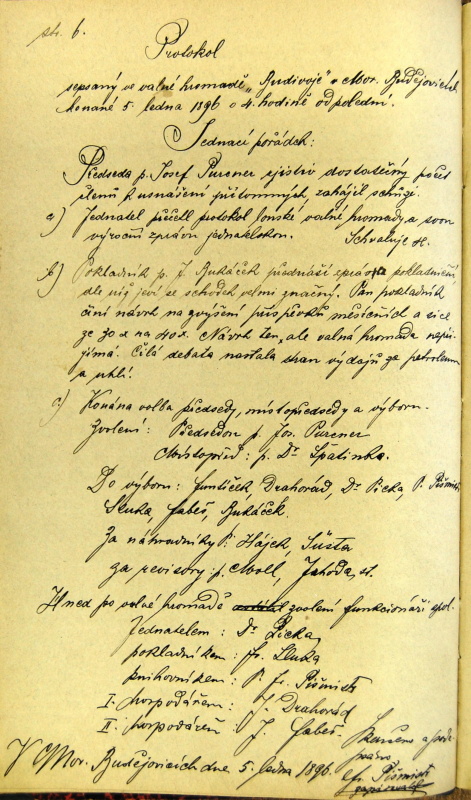 str. 6.
Protokol
sepsaný ve valné hromadě „Budivoje“ v Mor. Budějovicích
konané 5. ledna 1896 o 4. hodině odpolední.
Jednací pořádek:
Předseda p. Josef Purcner zjistiv dostatečný počet
členů k usnášení přítomných, zahájil schůzi.
a) Jednatel přečetl protokol loňské valné hromady a svou
výroční zprávu jednatelskou. Schvaluje se.
b) Pokladník p. J. Bukáček přednáší zprávu pokladniční,
dle níž jeví se schodek velmi značný. Pan pokladník
činí návrh na zvýšení příspěvků měsíčních a sice
ze 30 x na 40 x. Návrh ten, ale valná hromada nepři-
jímá. Čilá debata nastala stran výdajů za petroleum
a uhlí.
c) Konána volba předsedy, místopředsedy a výboru.
Zvoleni: Předsedou p. Jos. Purcner
Místopřed: p. Dr. Špatinka.
Do výboru: Drahorád, Dr. Picka, P. 
Sluka, Fabeš, Bukáček.
Za náhradníky: Hájek, Šusta
za revisory: p. Moll, Jahoda, st.
Hned po valné hromadě zvoleni funkcionáři spol.
Jednatelem: Dr. Picka,
pokladníkem: Fr. Sluka
knihovníkem: P. Fr.
I. hospodářem: J. Drahorád
II. hospodářem J. Fabeš.
Skončeno a pode-
psáno
V Mor. Budějovicích dne 5. ledna 1896.